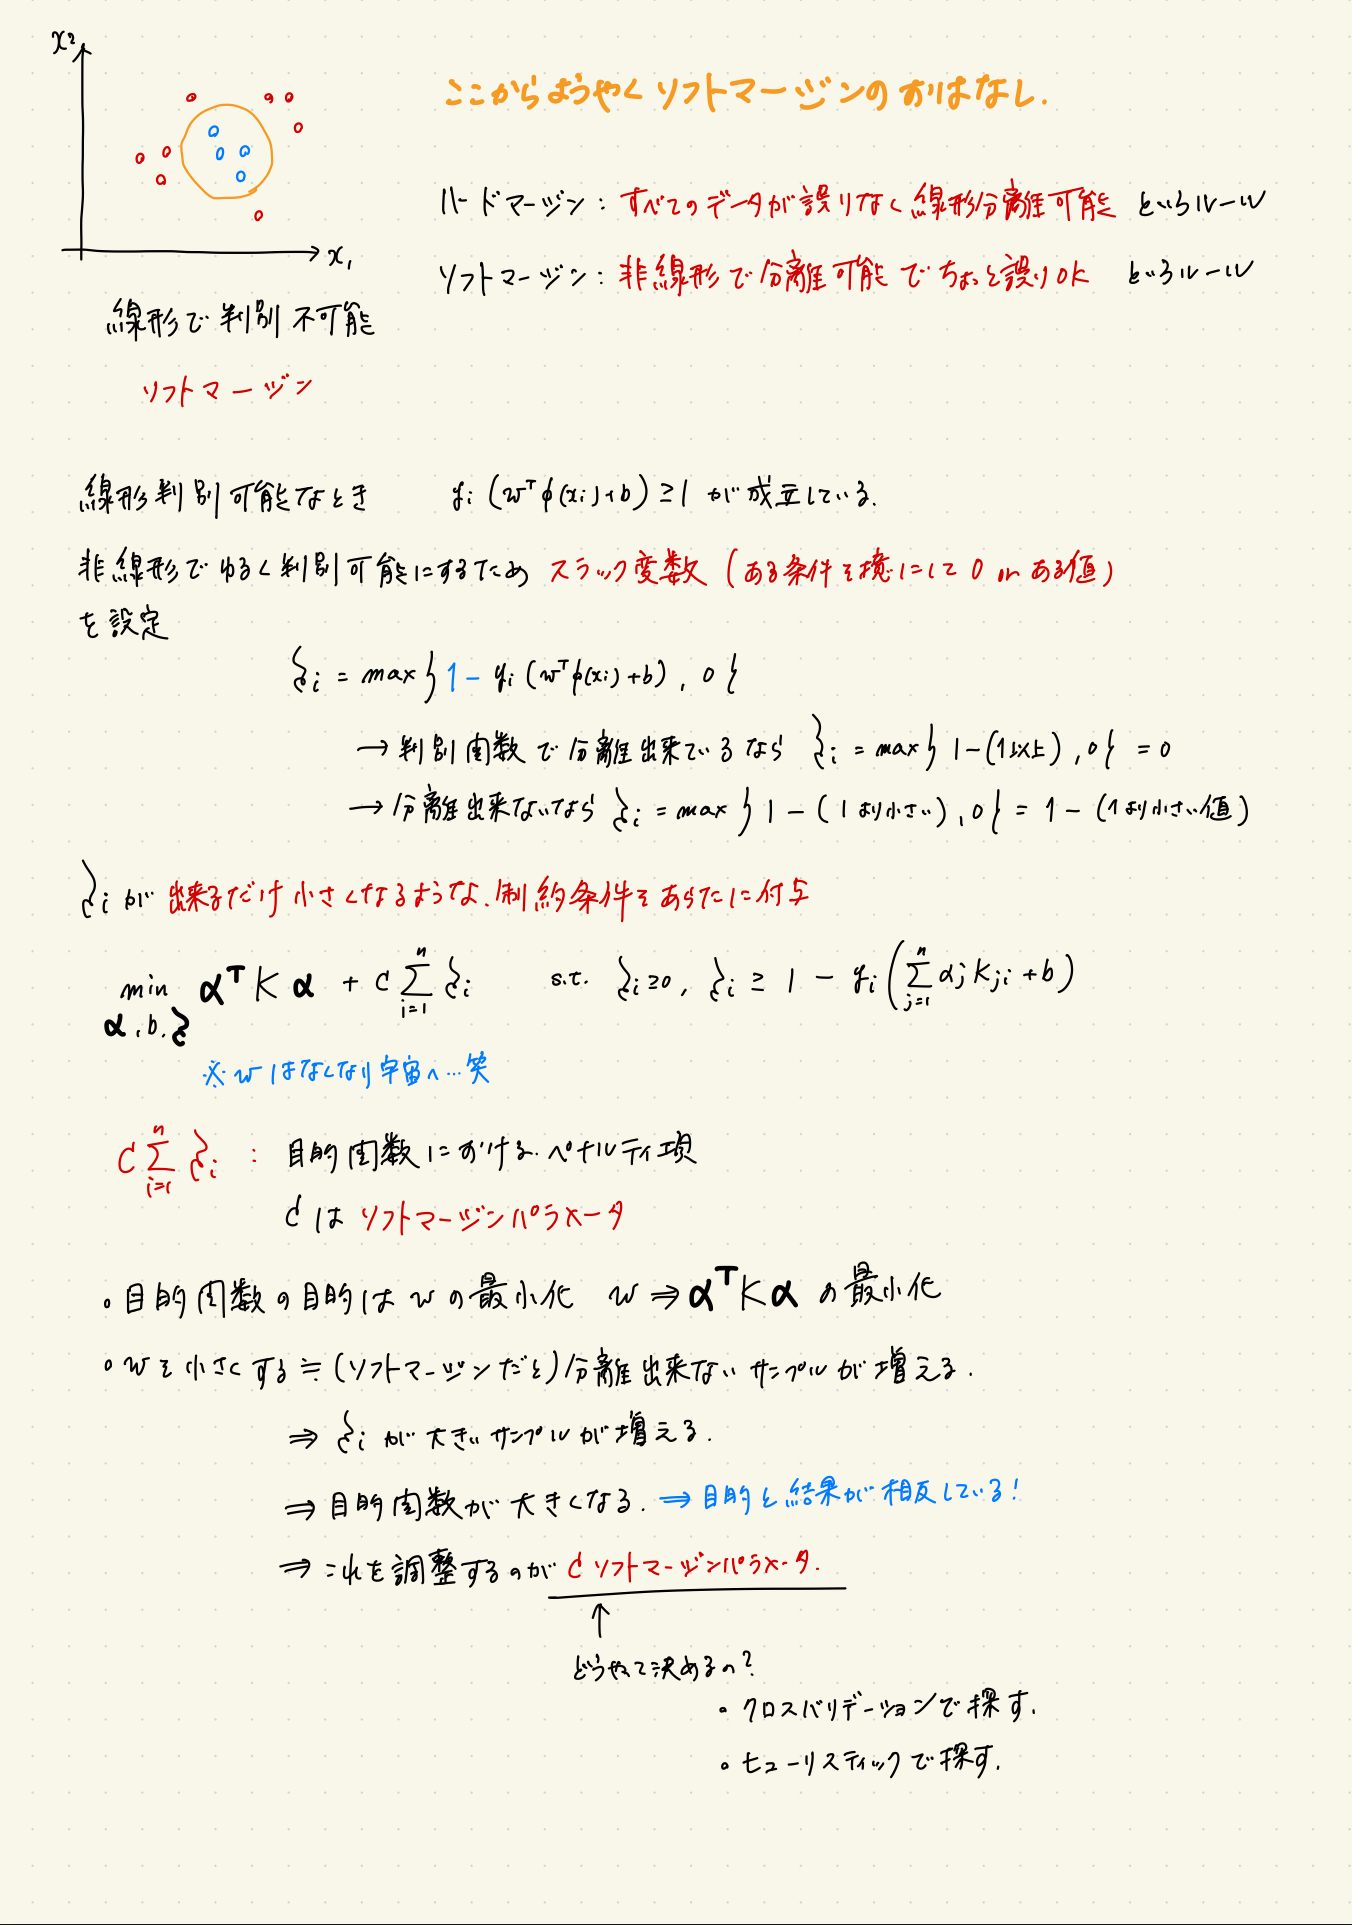 x₂
x₁
ここからようやくソフトマージンのおはなし.
ハードマージン: すべてのデータが誤りなく線形分離可能 というルール
ソフトマージン: 非線形で分離可能でちょっと誤りOK というルール
線形で判別不可能
ソフトマージン
線形判別可能なとき yᵢ(wᵀφ(xᵢ)+b)≥1 が成立している.
非線形でゆるく判別可能にするため スラック変数 (ある条件を境にして 0 or ある値)
を設定
ξᵢ = max{1 - yᵢ(wᵀφ(xᵢ)+b), 0}
→ 判別関数で分離出来ているなら ξᵢ = max{1-(1以上), 0} = 0
→ 分離出来ないなら ξᵢ = max{1-(1より小さい), 0} = 1-(1より小さい値)
ξᵢ が 出来るだけ小さくなるような.制約条件をあらたに付与
min α, b, ξ αᵀKα + C Σⁿᵢ₌₁ ξᵢ s.t. ξᵢ≥0, ξᵢ ≥ 1 - yᵢ(Σⁿⱼ₌₁ αⱼKⱼᵢ + b)
※ wはなくなり宇宙へ…笑
C Σⁿᵢ₌₁ ξᵢ : 目的関数における.ペナルティ項
Cは ソフトマージンパラメータ
○目的関数の目的は w の最小化 w ⇒ αᵀKα の最小化
○wを小さくする ≒ (ソフトマージンだと)分離出来ないサンプルが増える.
⇒ ξᵢ が大きいサンプルが増える.
⇒ 目的関数が大きくなる. ⇒ 目的と結果が相反している!
⇒ これを調整するのが C ソフトマージンパラメータ.
↑
どうやって決めるの?
○ クロスバリデーションで探す.
○ ヒューリスティックで探す.